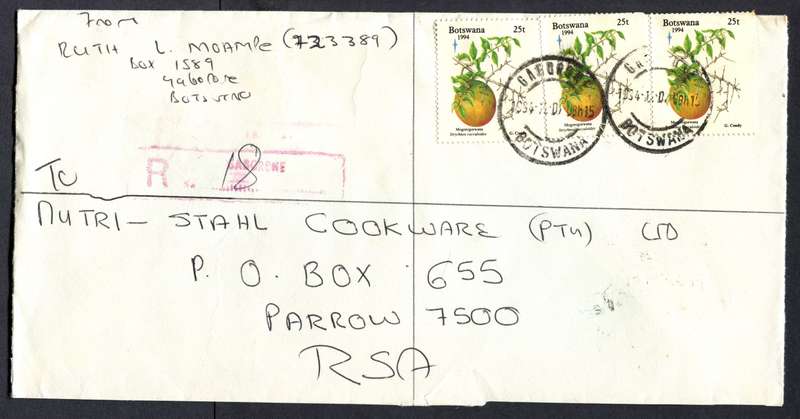 From
RUTH L. MOAMPE (7233389)
BOX 1589
Gaborone
BOTSWANA
Botswana 25t
1994
Botswana 25t
1994
Botswana 25t
1994
Mogorogorwana
Strychnos cocculoides
G. Condy
GABORONE
BOTSWANA
GABORONE
BOTSWANA
R
GABORONE
18
To
NUTRI- STAHL COOKWARE (PTY) LTD
P. O. BOX 655
PARROW 7500
RSA